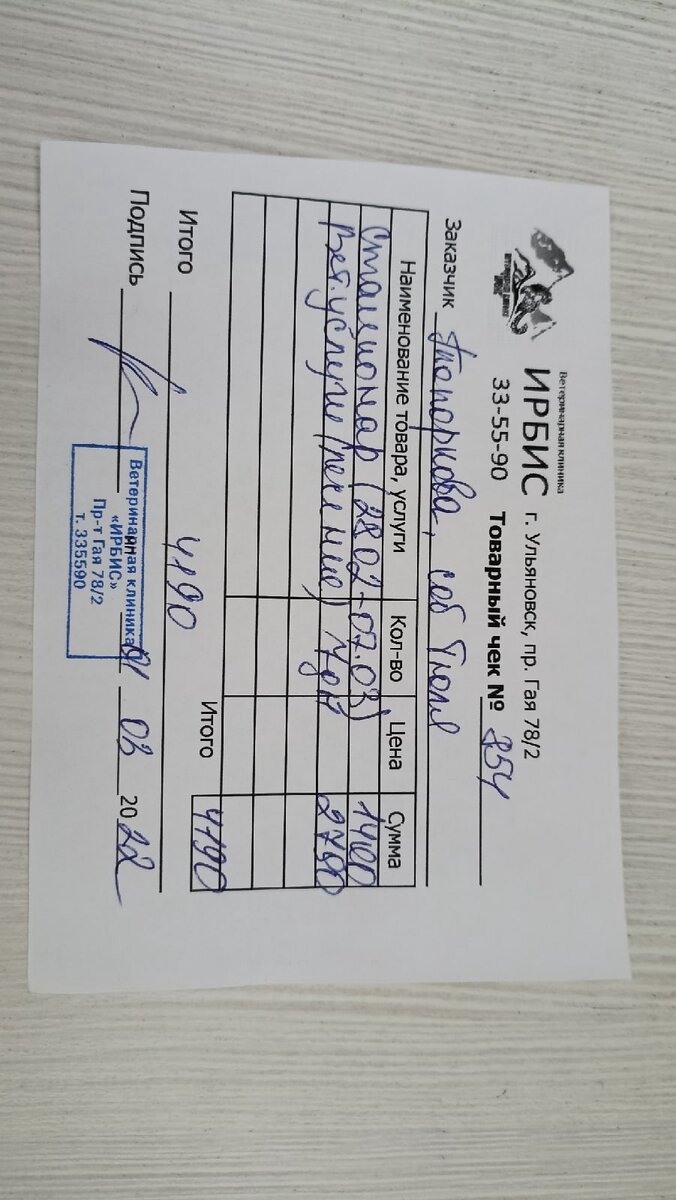 Ветеринарная клиника
ИРБИС г. Ульяновск, пр. Гая 78/2
33-55-90 Товарный чек № 854
Заказчик Топоркова, соб Тюля
Наименование товара, услуги Кол-во Цена Сумма
Стационар (28.02-07.03) 1400
Вет.услуги (лечение) 7 дн 2790
Итого 4190
Итого 4190
Подпись 01 03 2022
Ветеринарная клиника
«ИРБИС»
Пр-т Гая 78/2
т. 335590